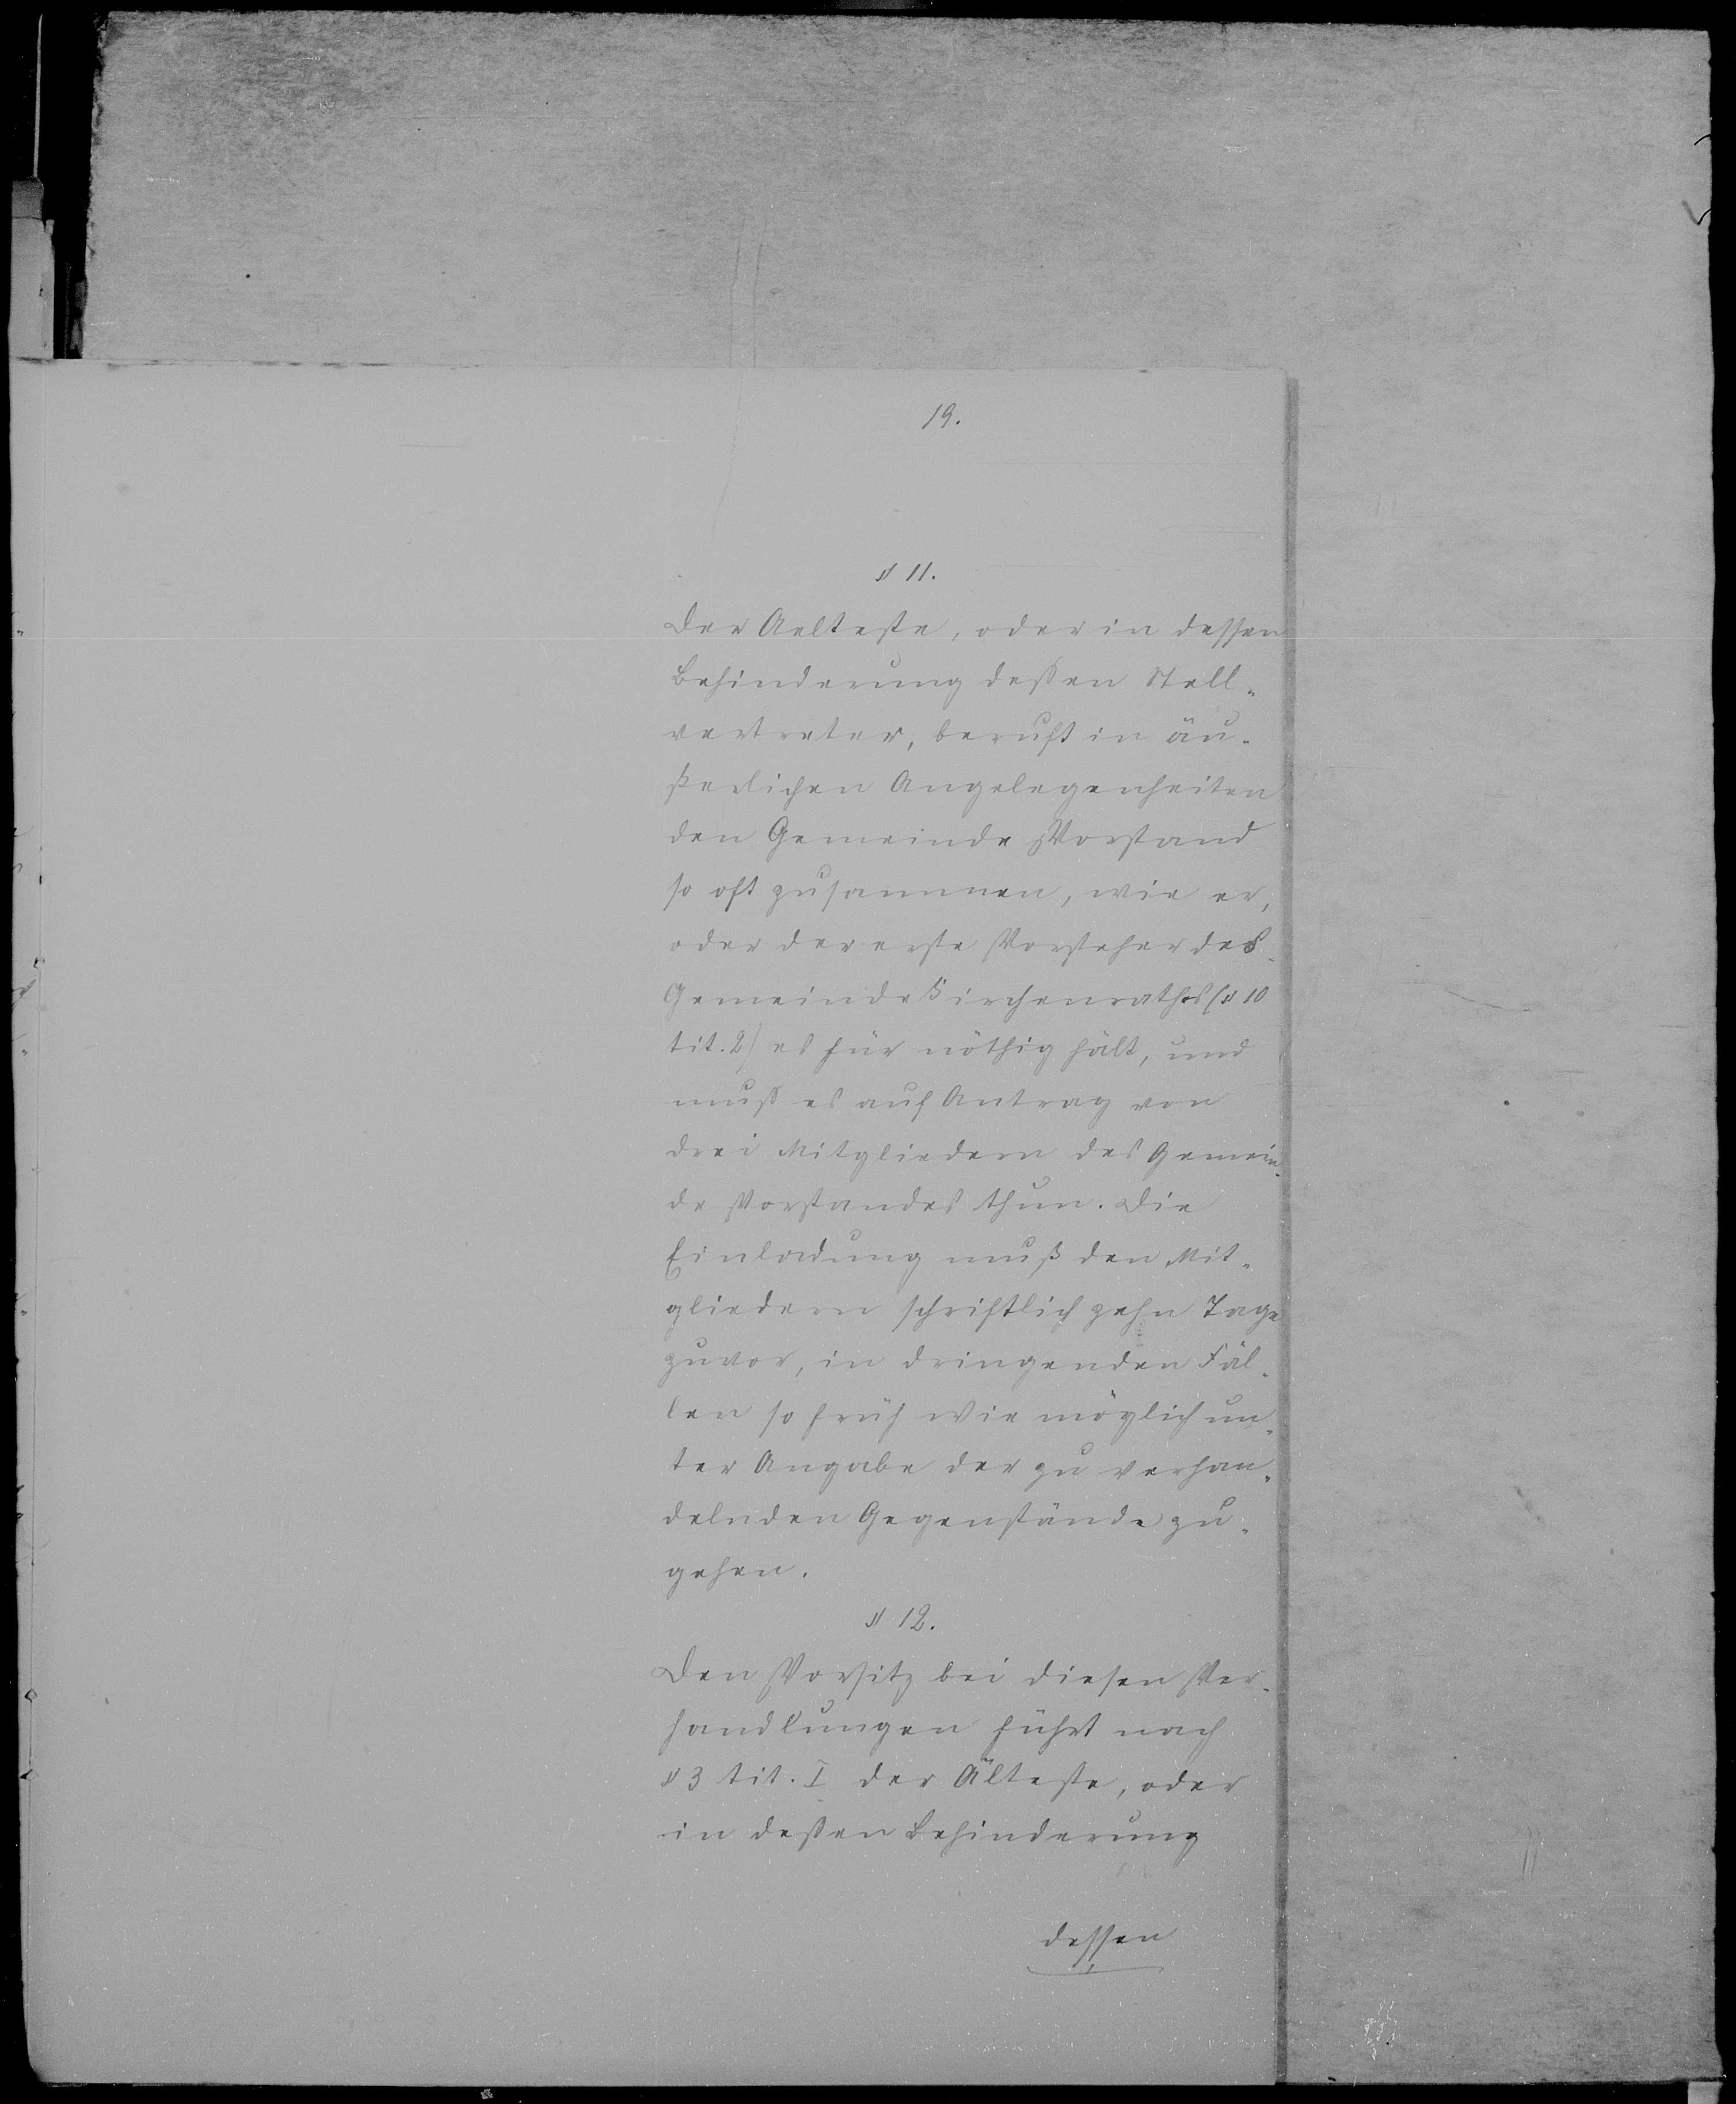 19.
§ 11.
Der Aelteste, oder in dessen
Behinderung deßen Stell-
vertreter, beruft in äu-
ßerlichen Angelegenheiten
den Gemeinde Vorstand
so oft zusammen, wie er,
oder der erste Vorsteher des
Gemeinde Kirchenrathes (§ 10
tit. 2) es für nöthig hält, und
muß es auf Antrag von
drei Mitgliedern des Gemein-
de Vorstandes thun. Die
Einladung muß den Mit-
gliedern schriftlich zehn Tage
zuvor, in dringenden Fäl-
len so früh wie möglich un-
ter Angabe der zu verhan-
delnden Gegenstände zu-
gehen.
§ 12.
Den Vorsitz bei diesen Ver-
handlungen führt nach
§ 3 tit. I der Älteste, oder
in deßen Behinderung
dessen